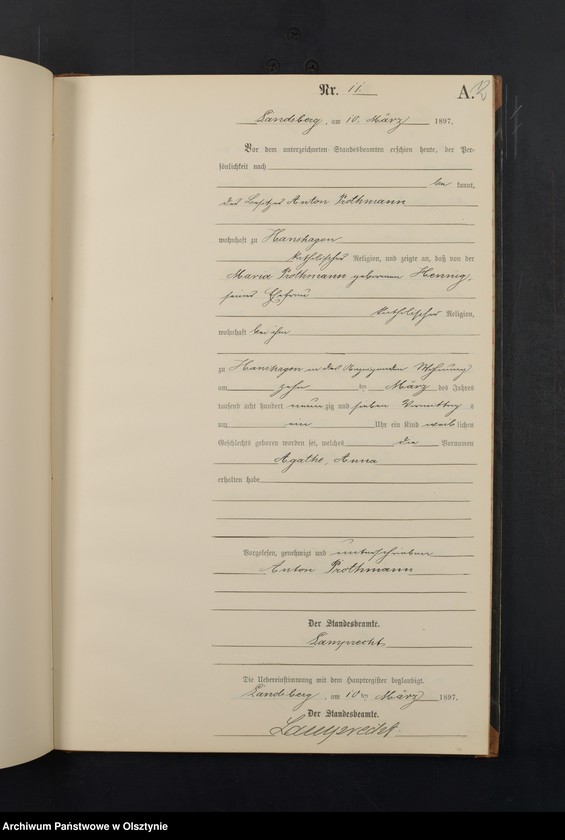 Nr. 11
A.
Landsberg, am 10. März 1897.
Vor dem unterzeichneten Standesbeamten erschien heute, der Per-
sönlichkeit nach
be kannt,
der Besitzer Anton Prothmann
wohnhaft zu Hanshagen
katholischer Religion, und zeigte an, daß von der
Maria Prothmann geborenen Hennig,
seiner Ehefrau
katholischer Religion,
wohnhaft bei ihm
zu Hanshagen in der Wohnung
am zehn ten März des Jahres
tausend acht hundert neun zig und sieben Vormittag s
um ein Uhr ein Kind weib lichen
Geschlechts geboren worden sei, welches die Vornamen
Agathe, Anna
erhalten habe
Vorgelesen, genehmigt und unterschrieben
Anton Prothmann
Der Standesbeamte.
Lamprecht
Die Uebereinstimmung mit dem Hauptregister beglaubigt.
Landsberg, am 10 ten März 1897.
Der Standesbeamte.
Lamprecht.
Archiwum Państwowe w Olsztynie